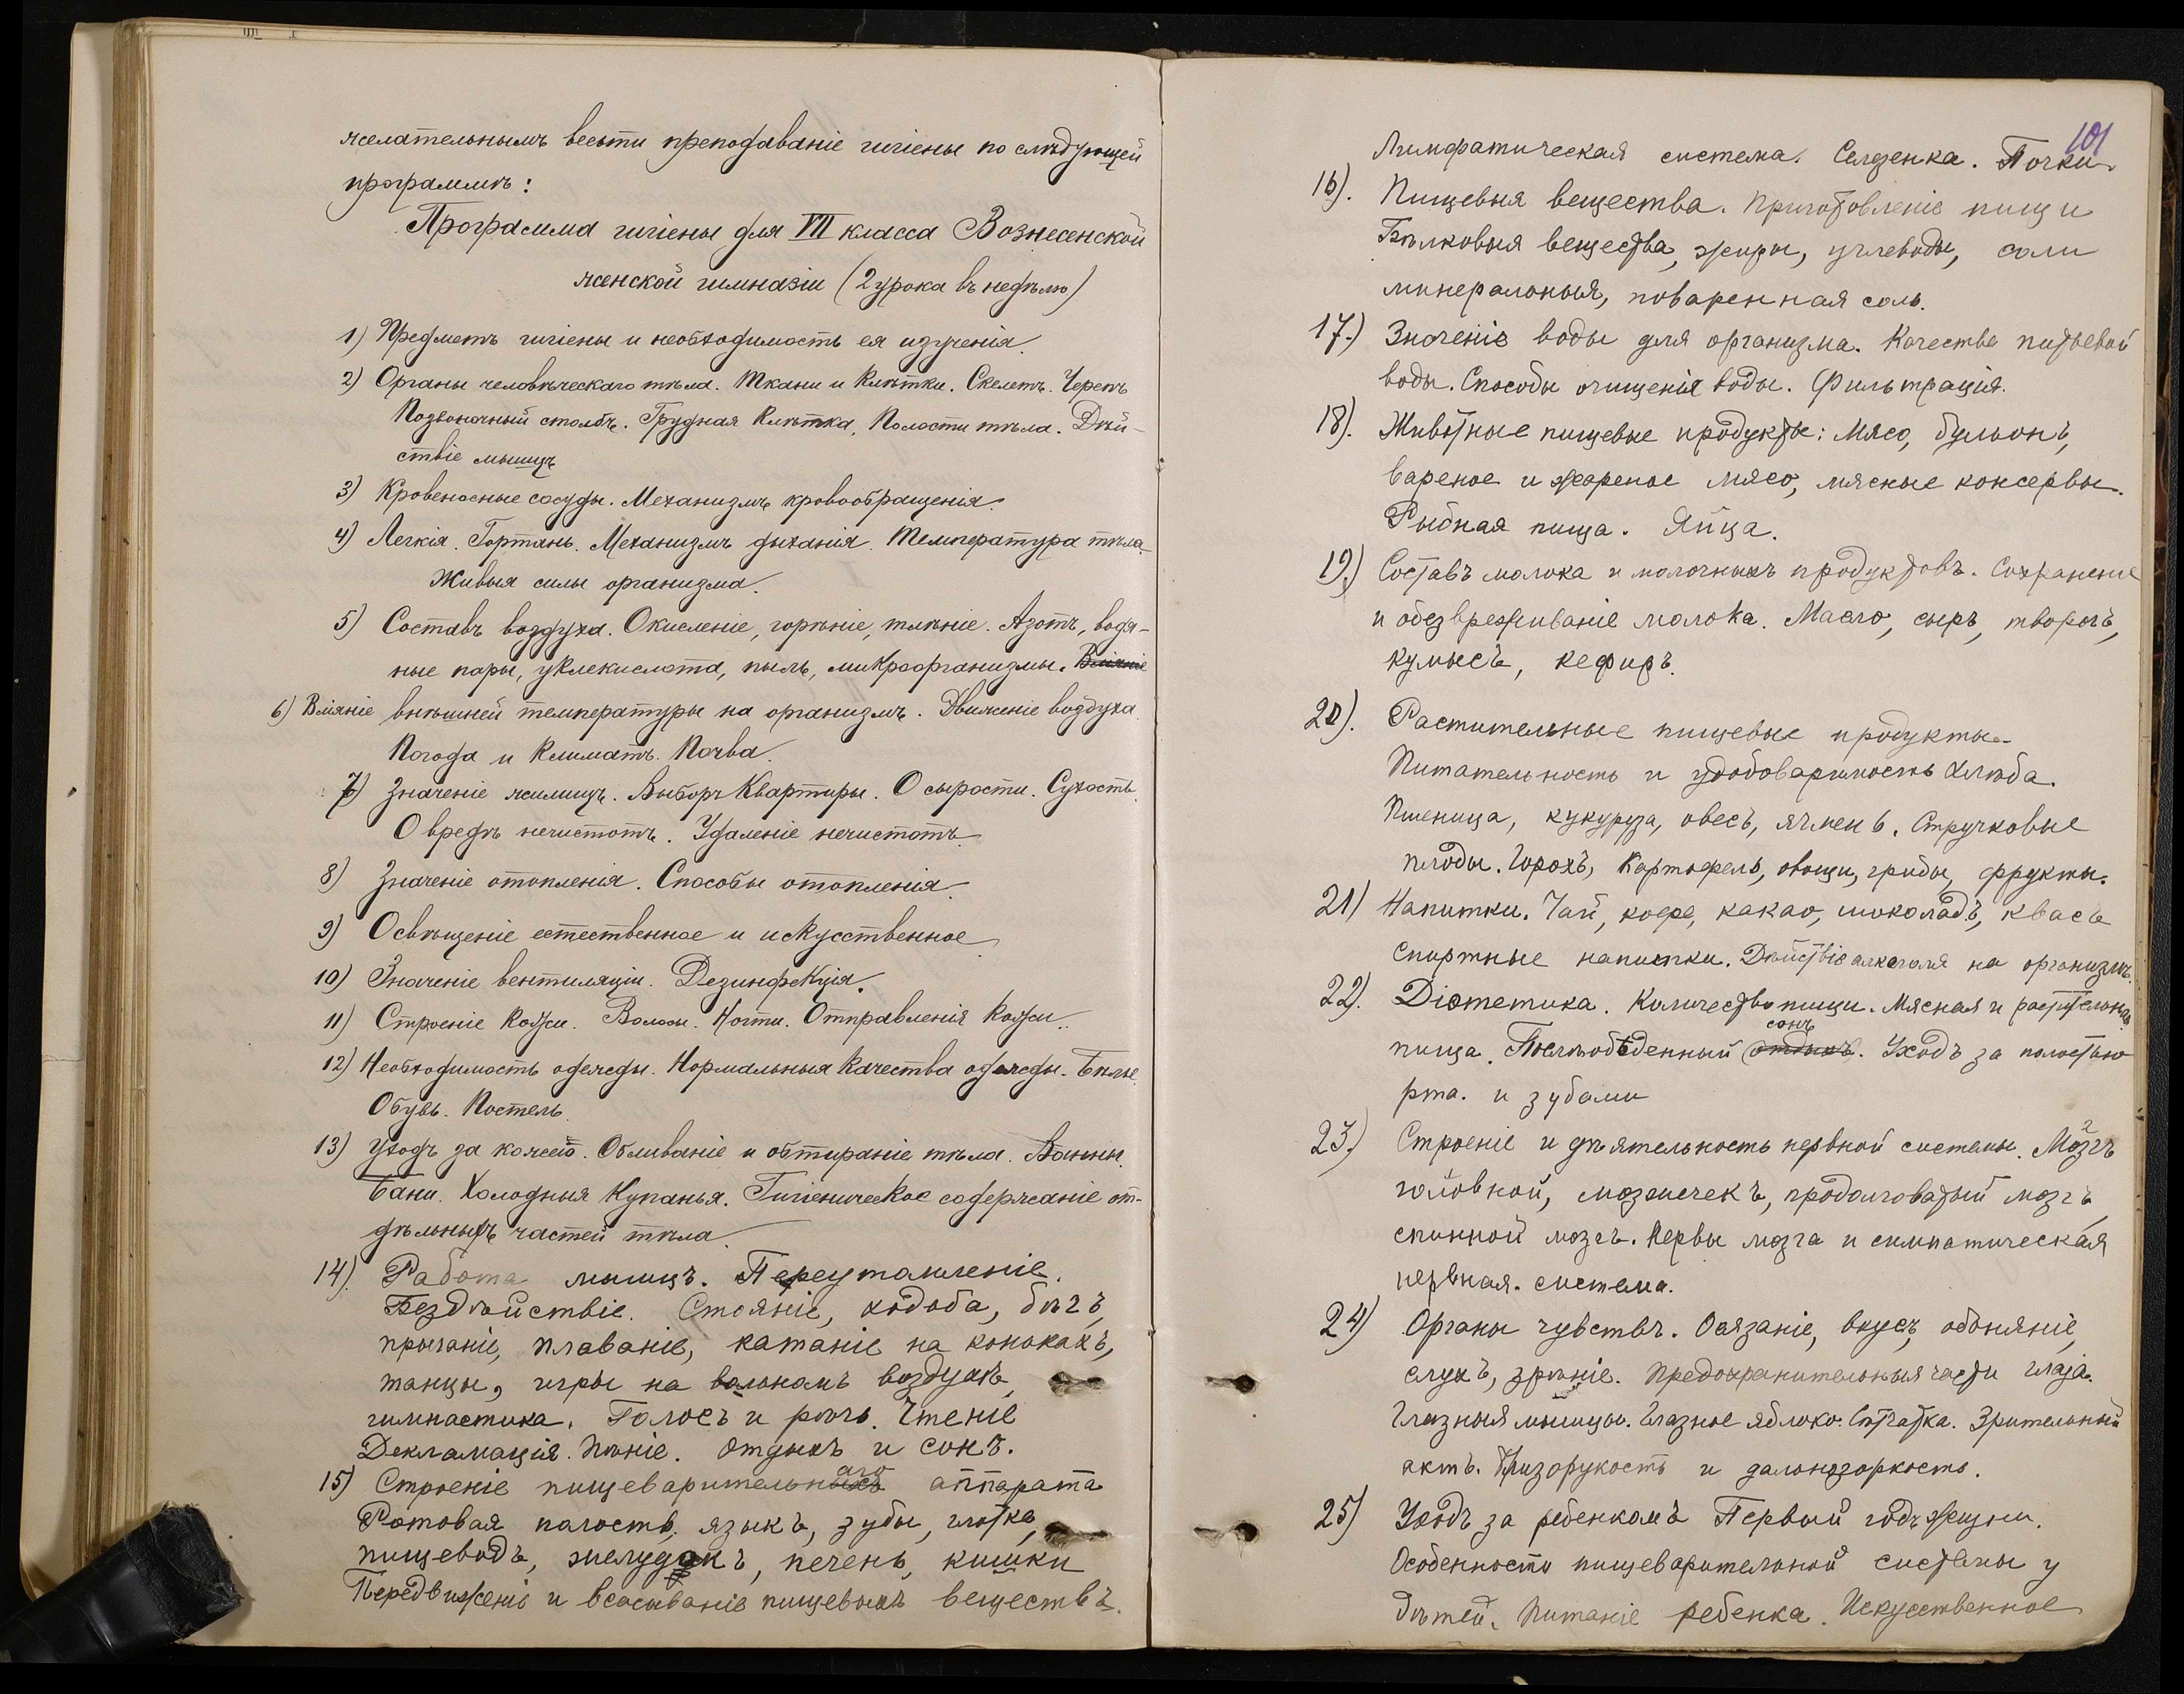 желательнымъ вести преподаваніе гигіены по слѣдующей
программѣ:
Программа гигіены для VII класса Вознесенской
женской гимназіи (2 урока въ недѣлю)
1) Предметъ гигіены и необходимость ея изученія.
2) Органы человѣческаго тѣла. Ткани и клѣтки. Скелетъ. Черепъ
Позвоночный столбъ. Грудная клѣтка. Полости тѣла. Дѣй-
ствіе мышцъ
3) Кровеносные сосуды. Механизмъ кровообращенія.
4) Легкія. Гортань. Механизмъ дыханія. Температура тѣла.
Живыя силы организма.
5) Составъ воздуха. Окисленіе, горѣніе, тлѣніе. Азотъ, водя-
ные пары, углекислота, пыль, микроорганизмы. Вліяніе
6) Вліяніе внѣшней температуры на организмъ. Движеніе воздуха.
Погода и климатъ. Почва.
7) Значеніе жилищъ. Выборъ квартиры. О сырости. Сухость.
О вредѣ нечистотъ. Удаленіе нечистотъ.
8) Значеніе отопленія. Способы отопленія.
9) Освѣщеніе естественное и искусственное
10) Значеніе вентиляціи. Дезинфекція.
11) Строеніе кожи. Волосы. Ногти. Отправленія кожи.
12) Необходимость одежды. Нормальныя качества одежды. Бѣлье.
Обувь. Постель.
13) Уходъ за кожей. Обливаніе и обтираніе тѣла. Ванны.
Бани. Холодныя купанья. Гигіеническое содержаніе от-
дѣльныхъ частей тѣла.
14). Работа мышцъ. Переутомленіе.
Бездѣйствіе. Стояніе, ходьба, бѣгъ,
прыганіе, плаваніе, катаніе на конькахъ,
танцы, игры на вольномъ воздухѣ,
гимнастика. Голосъ и рѣчь. Чтеніе
Декламація. Пѣніе. Отдыхъ и сонъ.
15) Строеніе пищеварительнаго аппарата
Ротовая полость, языкъ, зубы, глотка,
пищеводъ, желудокъ, печень, кишки
Передвиженіе и всасываніе пищевыхъ веществъ.
101
Лимфатическая система. Селезенка. Почки.
16). Пищевыя вещества. Приготовленіе пищи
Бѣлковыя вещества, жиры, углеводы, соли
минеральныя, поваренная соль.
17.) Значеніе воды для организма. Качества питьевой
воды. Способы очищенія воды. Фильтрація.
18). Животные пищевые продукты: Мясо, бульонъ,
вареное и жареное мясо, мясные консервы.
Рыбная пища. Яйца.
19.) Составъ молока и молочныхъ продуктовъ. Сохраненіе
и обезвреживаніе молока. Масло, сыръ, творогъ,
кумысъ, кефиръ.
20). Растительные пищевые продукты.
Питательность и удобоваримость хлѣба.
Пшеница, кукуруза, овесъ, ячмень. Стручковые
плоды. Горохъ, Картофель, овощи, грибы, фрукты.
21) Напитки. Чай, кофе, какао, шоколадъ, квасъ
Спиртные напитки. Дѣйствіе алкоголя на организмъ.
22). Діэтетика. Количество пищи. Мясная и растительная
пища. Послѣобѣденный отдыхъ сонъ. Уходъ за полостью
рта. и зубами
23.) Строеніе и дѣятельность нервной системы. Мозгъ
головной, мозжечекъ, продолговатый мозгъ,
спинной мозгъ. Нервы мозга и симпатическая
нервная. система.
24) Органы чувствъ. Осязаніе, вкусъ, обоняніе,
слухъ, зрѣніе. Предохранительныя части глаза.
Глазныя мышцы. Глазное яблоко. Сѣтчатка. Зрительный
актъ. Близорукость и дальнозоркость.
25) Уходъ за ребенкомъ Первый годъ жизни.
Особенности пищеварительной системы у
дѣтей. Питаніе ребенка. Искусственное